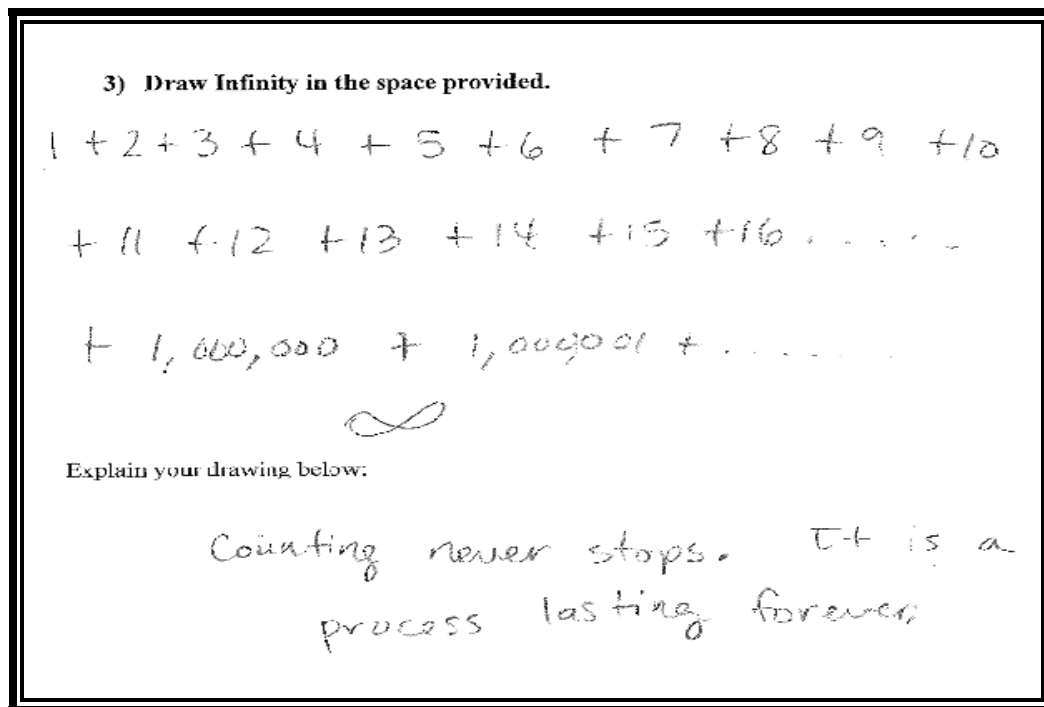 3) Draw Infinity in the space provided.
1 + 2 + 3 + 4 + 5 + 6 + 7 + 8 + 9 + 10
+ 11 + 12 + 13 + 14 + 15 + 16 . . . . .
+ 1,000,000 + 1,000,001 + . . . . . .
∞
Explain your drawing below:
Counting never stops. It is a
process lasting forever.